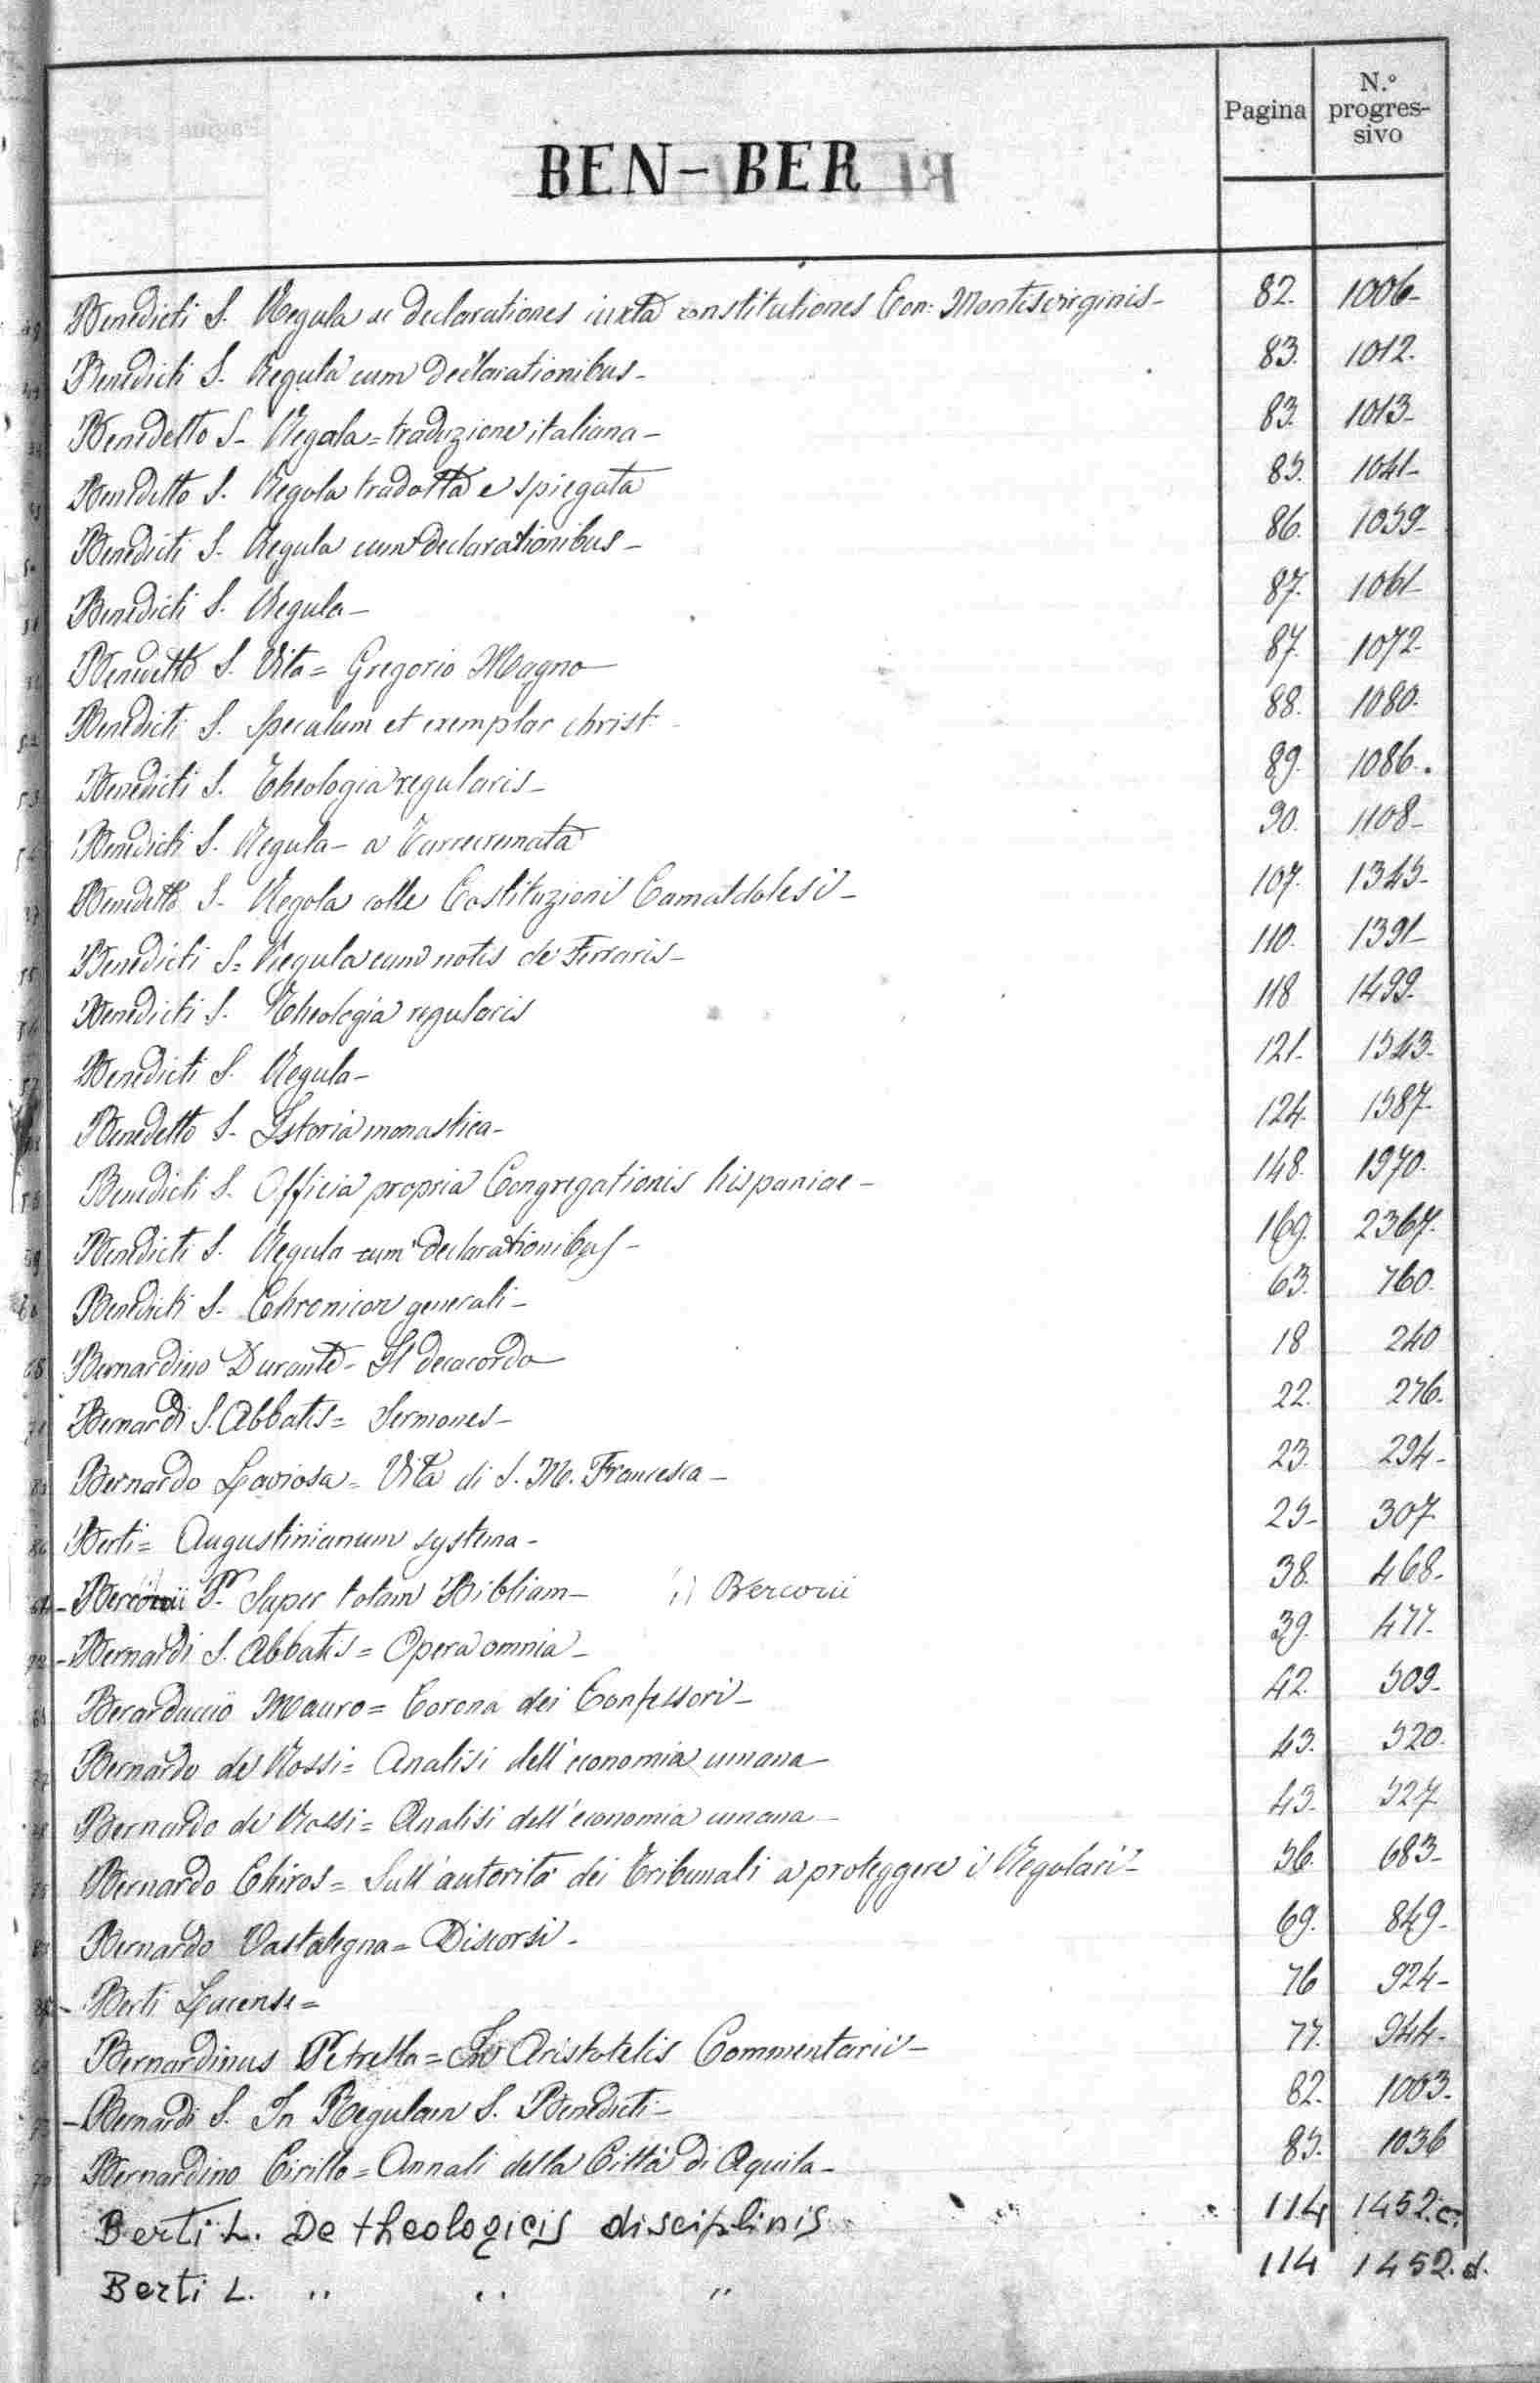 Pagina N.º progres-sivo
BEN-BER
Benedicti S. Regula ac declarationes iuxta constitutiones Con: Montisvirginis- 82. 1006-
Benedicti S. Regula cum declarationibus- 83. 1012.
Benedetto S- Regola=traduzione italiana- 83. 1013-
Benedetto S. Regola tradotta e spiegata 85. 1041-
Benedicti S. Regula cum declarationibus- 86. 1059-
Benedicti S. Regula- 87. 1061-
Benedetto S. Vita= Gregorio Magno- 87. 1072-
Benedicti S. Speculum et exemplar christ: 88. 1080.
Benedicti S. Theologia regularis- 89. 1086.
Benedicti S. Regula- a Turrecremata 90. 1108-
Benedetto S- Regola colle Costituzioni Camaldolesi- 107. 1345-
Benedicti S= Regula cum notis de Ferraris- 110. 1391-
Benedicti S. Theologia regularis 118 1499.
Benedicti S. Regula- 121- 1543-
Benedetto S- Istoria monastica- 124. 1587-
Benedicti S. Officia propria Congregationis hispaniae- 148. 1970.
Benedicti S. Regula cum declarationibus- 169. 2367.
Benedicti S- Chronicon generali- 63. 760.
Bernardino Durante- Il decacordo 18 240
Bernardi S. Abbatis= Sermones- 22. 276.
Bernardo Laviosa= Vita di S. M. Francesca- 23. 294-
Berti= Augustinianum systema- 25- 307
- P.r Super totam Bibliam- Bercorii 38. 468-
-Bernardi S. Abbatis= Opera omnia- 39. 477-
Berarduccio Mauro= Corona dei Confessori- 42. 509-
Bernardo de Rossi= Analisi dell'economia umana- 43. 520.
Bernardo de Rossi= Analisi dell'economia umana- 43- 527
Bernardo Chiros= Sull'autorità dei Tribunali a proteggere i Regolari- 56. 683-
Bernardo Vastalegna= Discorsi- 69. 849-
Berti Lucense= 76 924-
Bernardinus Petrella= In Aristotelis Commentarii- 77. 944-
-Bernardi S. In Regulam S. Benedicti- 82. 1003-
Bernardino Cirillo= Annali della Città di Aquila- 85. 1036
Berti L. De theologicis disciplinis 114 1452.c.
Berti L. " " " 114 1452.d.